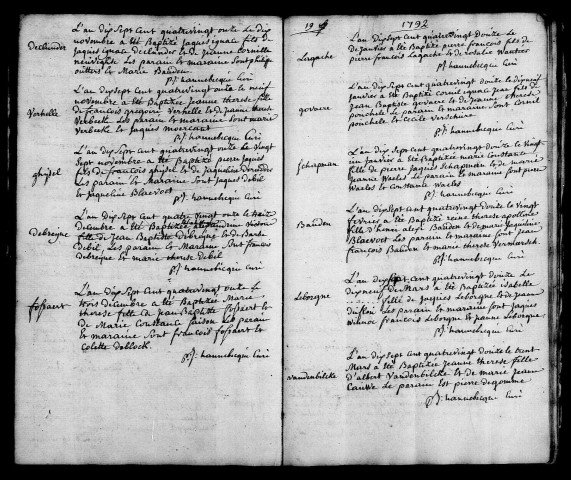 L'an dix Sept Cent quatrevingt onze le dix
novembre a été Baptizé jaques ignace fils de
Declander
jaques ignace declander & de jeanne Cornille
neuvéglise Les parain & maraine Sont philipe
outters & Marie Bauden.
pj. hannebicque Curé
L'an dix Sept Cent quatrevingt onze le neuf
novembre a été Baptizée jeanne therese fille
Verhelle
de francois gregoire Verhelle & de jeanne Marie
Verbecke Les parain & maraine Sont marie
Verbecke & jaques moercant
pj. hannebicque Curé
L'an dix Sept Cent quatrevingt onze le vingt
Sept novembre a été Baptizé pierre jaques
ghysel
fils de francois ghysel & de jaqueline
Les parain & Maraine Sont jaques debil
& jaqueline Blaevoet
pj. hannebicque Curé
L'an dix Sept Cent quatre vingt onze le
decembre a été Baptizée victoire
Debreyne
fille de jean Baptiste debreyne & de Barbe
Debil Les parain & Maraine Sont francois
debreyne & marie therese debil
pj. hannebicque Curé
L'an dix Sept Cent quatrevingt onze le
trois decembre a été Baptizée Marie
fossaert
therese fille de jean Baptiste fossaert &
de Marie Constance faison Les parain
& maraine Sont francois fossaert &
Colette deblock.
pj. hannebicque Curé
19
1792
L'an dix Sept Cent quatrevingt Douze Le
de janvier a été Baptizé pierre francois fils de
Legache
pierre francois Lagache & de rosalie Wautier
pj. hannebicque Curé
L'an dix Sept Cent quatrevingt douze le dixneuf
janvier a été Baptizé Corneil ignace fils de
govaere
jean Baptiste govaere & de jeanne therese
ponchele Les parain & maraine Sont Corneil
ponchele & Cecile Verschure
pj. hannebicque Curé
L'an dix Sept Cent quatrevingt douze le vingt
un janvier a été Baptizée marie Constance
Schapman
fille de pierre jaques Schapman & de marie
jeanne Waels Les parain & maraine Sont pierre
Waels & Constance Waels
pj. hannebicque Curé
L'an dix Sept Cent quatrevingt douze le vingt
fevrier a été Baptizée reine therese apolloni
Bauden
fille d'henri alex Bauden & de marie jaqueline
Blaevoet Les parain & maraine Sont pierre
francois Bauden & marie therese Vermersch.
pj. hannebicque Curé
L'an dix Sept Cent quatrevingt douze Le
dixneuf de Mars a été Baptizée isabelle
Leborgne
fille de jaques Leborgne & de jeanne
Les parain & maraine Sont jaques
Winnoc francois Leborgne & jeanne Leborgne.
pj. hannebicque Curé
L'an dix Sept Cent quatrevingt douze le trent
Mars a été Baptizée jeanne therese fille
Vandenbilcke
d'albert Vandenbilcke & de marie jeanne
Le parain est pierre degomme
pj. hannebicque Curé